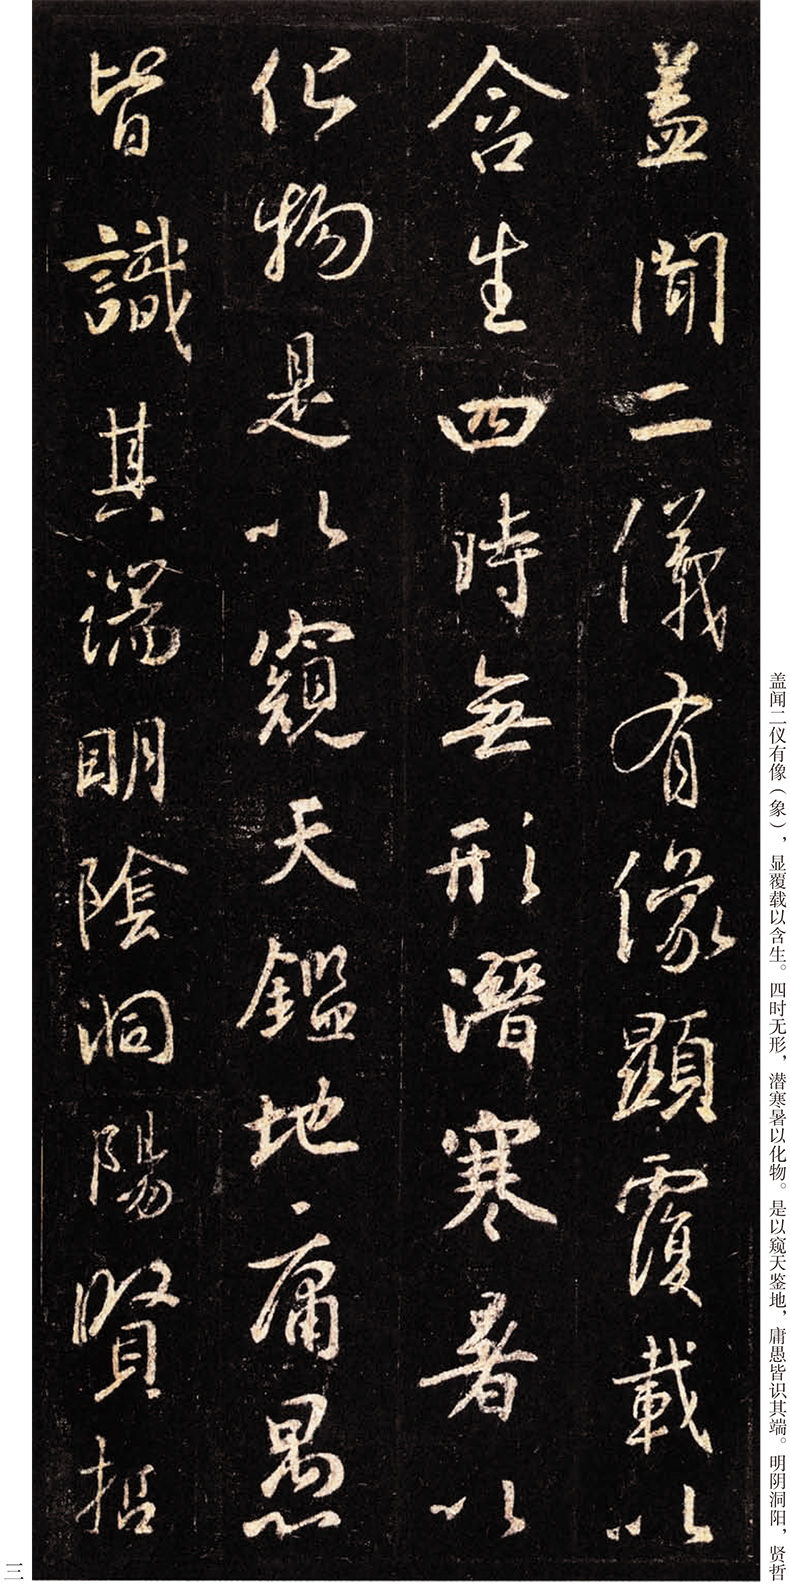 盖聞二儀有像顯覆載以
含生四時無形潛寒暑以
化物是以窺天鑑地庸愚
皆識其端明陰洞陽賢哲
盖闻二仪有像（象），显覆载以含生。四时无形，潜寒暑以化物。是以窥天鉴地，庸愚皆识其端。明阴洞阳，贤哲
三